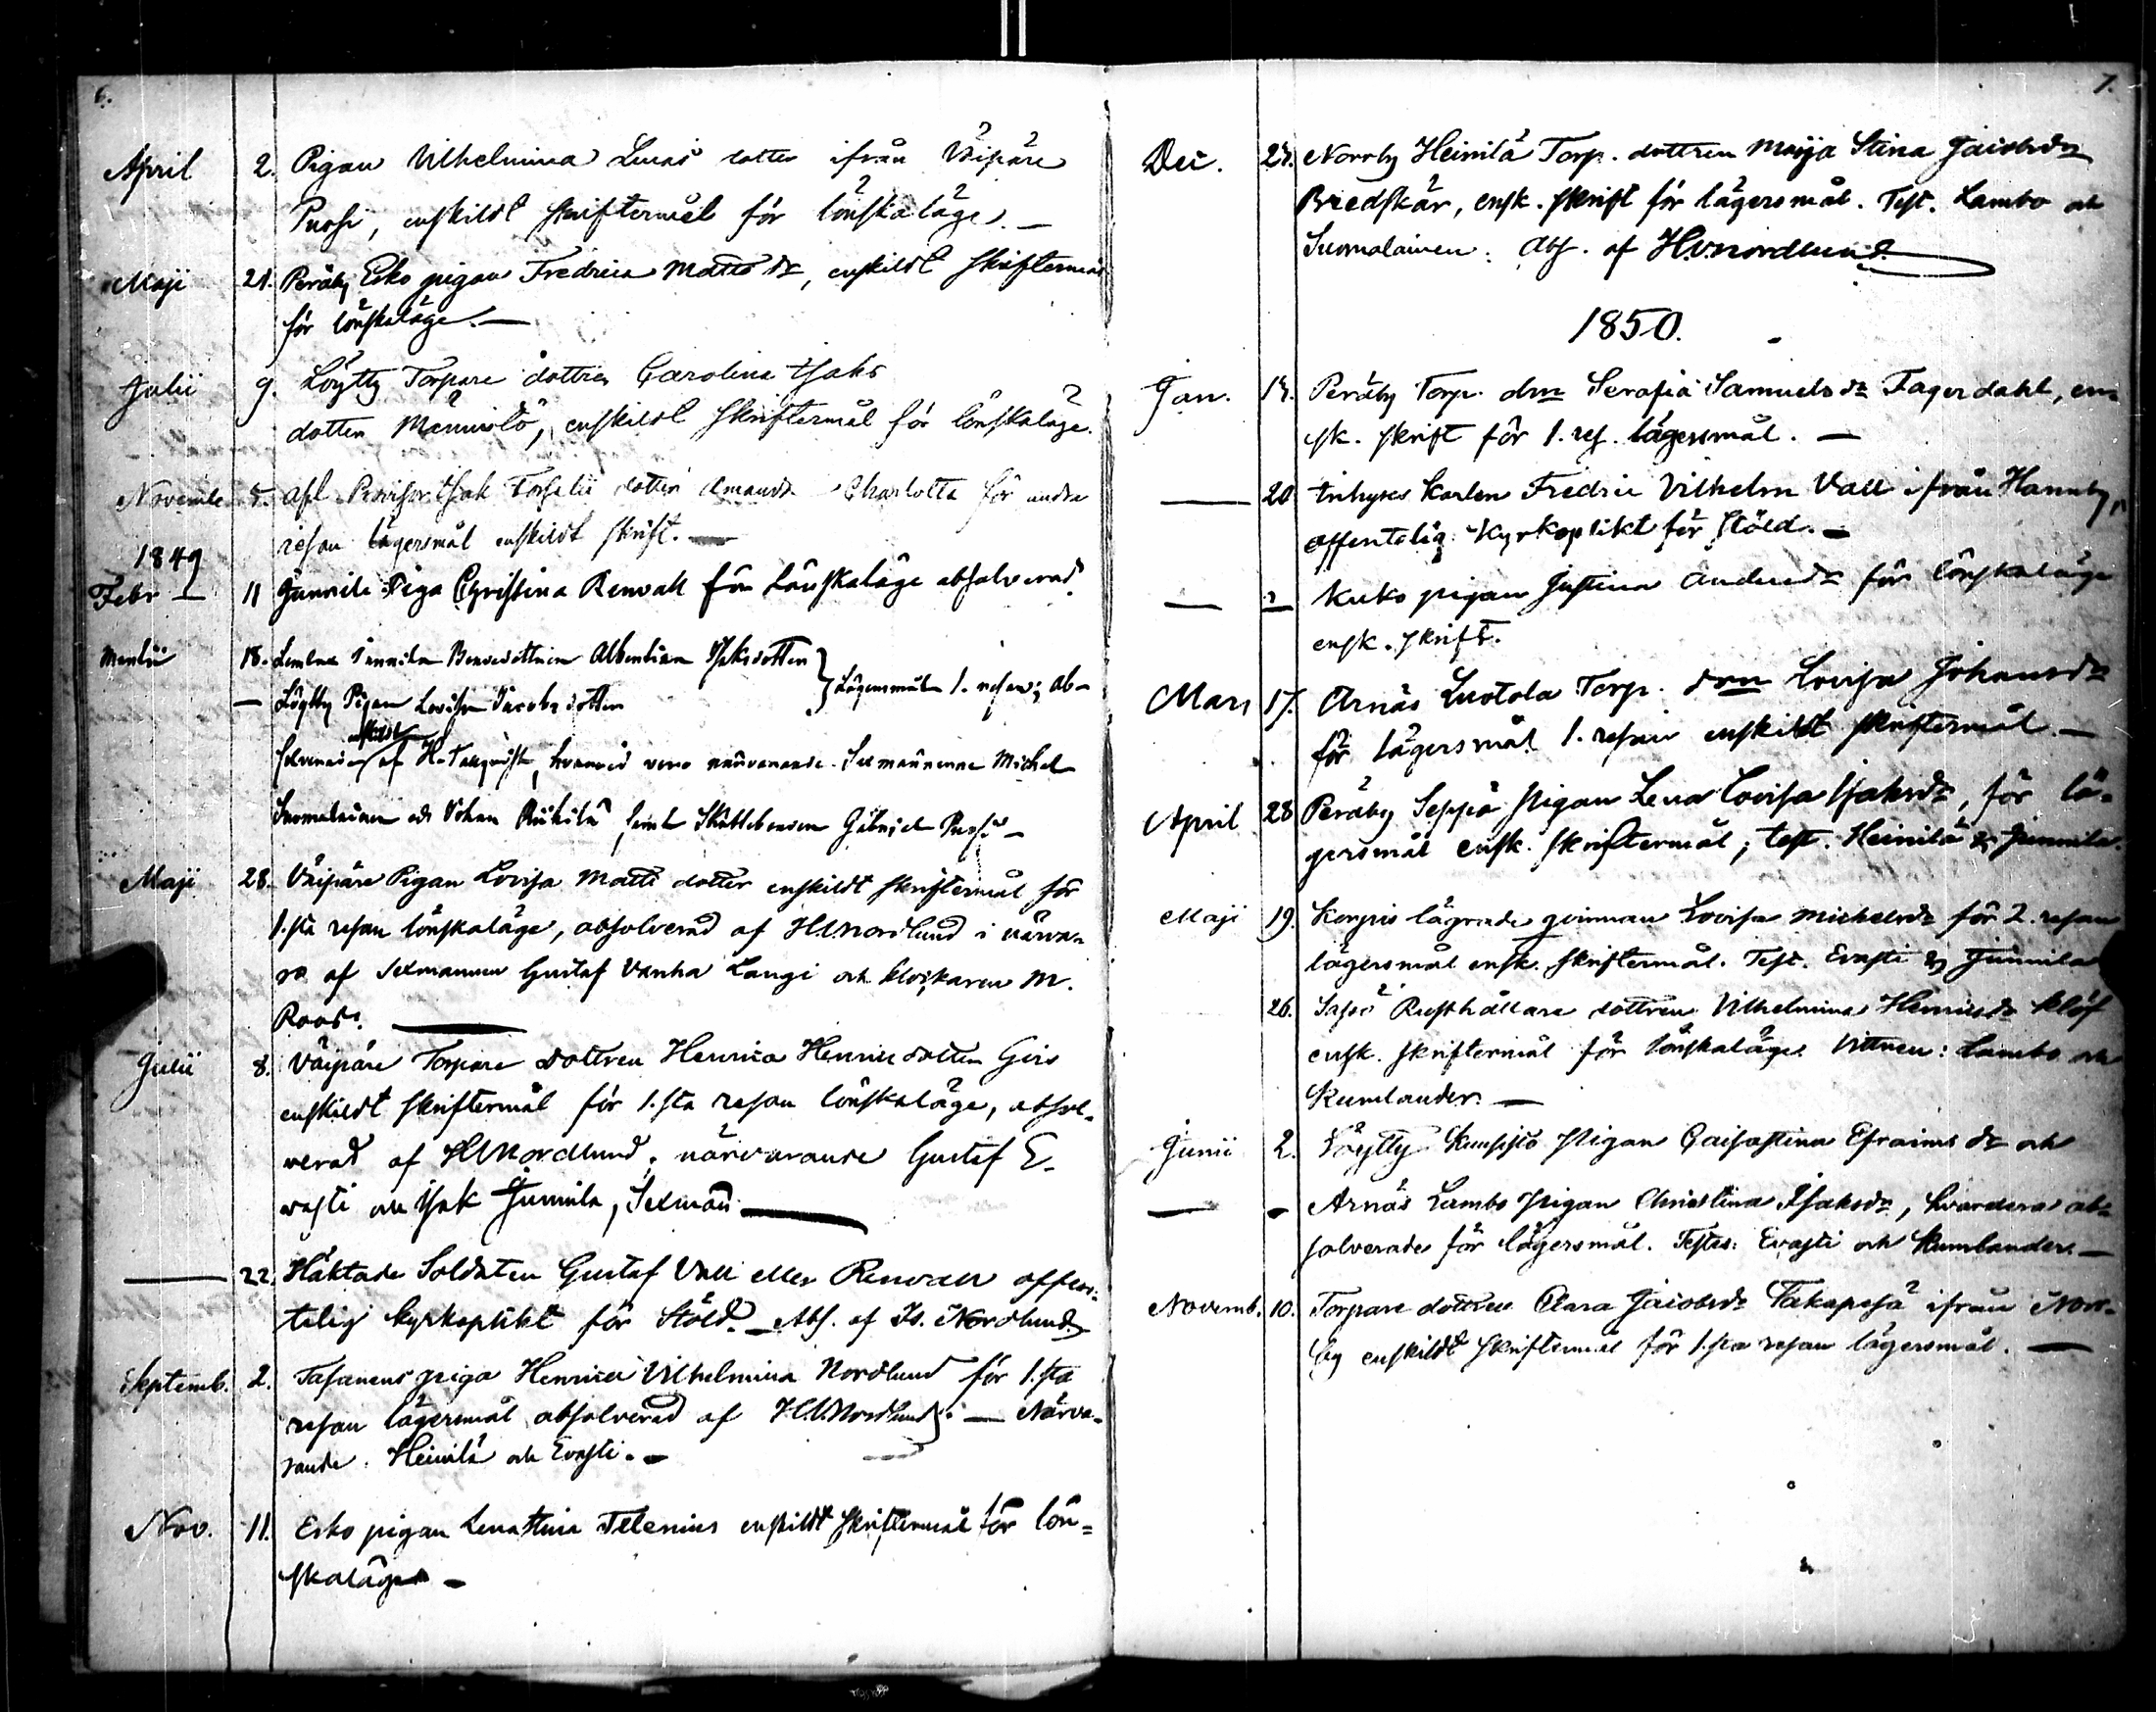 6.
April 2. Pigan Vilhelmina Lucas dotter ifrån Vaipäre
Pursi, enskildt skriftermål för lönskaläge. —
Maji 21. Peräby Esko pigan Fredrica Matts dr, enskildt skriftermål
för lönskaläge. —
Julii 9. Löytty Torpare dottren Carolina Isaks
dotter Mennistö, enskildt skriftermål för lönskaläge.
Novembr 5. Afl. Isak dotter Amanda Charlotta för andra
resan lägersmål enskildt skrift. —
1849
Febr — 11 Junnila Piga Christina Renvall för Lönskaläge absolverad.
Martii 18. Junnila Albertina Isaksdotter } Lägersmål 1. resan; ab-
— Löytty Pigan Lovisa Jacobsdotter
enskildt
solverade af H. Tallqvist, hvarvid voro närvarande Sexmännerne Michel
Suomalainen och Johan Riikilä samt Gabriel Pursi —
Maji 28. Vaipäre Pigan Lovisa Matts dotter enskildt skriftermål för
1.sta resan lönskaläge, absolverad af H.V.Nordlund i närva-
ro af Sexmannen Gustaf Vanha Langi och klockaren M.
Roos. —
Julii 8. Vaipäre Torpare dottren Henrica Henricsdotter Girs
enskildt skriftermål för 1.sta resan lönskaläge, absol-
verad af H.V.Nordlund, närvarande Gustaf E-
rasti och Isak Junnila, Sexmän —
— 22. Häktade Soldaten Gustaf Vall eller Renvall offen-
telig kyrkoplikt för Stöld. — Abs. af Is. Nordlund
Septemb. 2. Tasanens piga Henrica Vilhelmina Nordlund för 1.sta
resan lägersmål absolverad af H.V.Nordlund. — Närva-
rande. Heinilä och Erasti. —
Nov. 11. Esko pigan Lenastina Telenius enskildt skriftermål för lön=
skaläge —
7.
Dec. 27. Norrby Heinilä Torp. dottren Maija Stina Jacobsdr
Bredskär, ensk. skrift för lägersmål. Test. Lambo och
Suomalainen: Abs. af H.V.Nordlund.
1850.
Jan. 13. Peräby Torp. drn Serafia Samuelsdr Fagerdahl, en-
sk. skrift för 1. res. lägersmål. —
— 20 Inhyses Karlen Fredric Vilhelm Vall ifrån Hannby,
offentelig Kyrkoplikt för stöld. —
— — Kuko pigan Justina Andersdr för lönskaläge
ensk. skrift.
Mars 17. Arnäs Luotola Torp. drn Lovisa Johansdr
för lägersmål 1. resan enskildt skriftermål. —
April 28 Peräby Seppä Pigan Lena Lovisa Isaksdr, för lä-
gersmål ensk. skriftermål; test. Heinilä & Junnila.
Maji 19. Korpis lägrade qvinnan Lovisa Michelsdr för 2. resan
lägersmål ensk. skriftermål. Test. Erasti & Junnila
26. Sasso Rusthållare dottren Vilhelmina Henricsdr Klöf
ensk. skriftermål för lönskaläge. Vittnen: Lambo och
Kumlander. —
Junii 2. Löytty Kuusisto Pigan Caisastina Efraimsdr och
— — Arnäs Lambo Pigan Christina Isaksdr, hvardera ab=
solverade för lägersmål. Testes: Erasti och Kumlander. —
Novemb. 10. Torpare dottren Clara Jacobsdr Takapesä ifrån Norr-
by enskildt skriftermål för 1.sta resan lägersmål. —